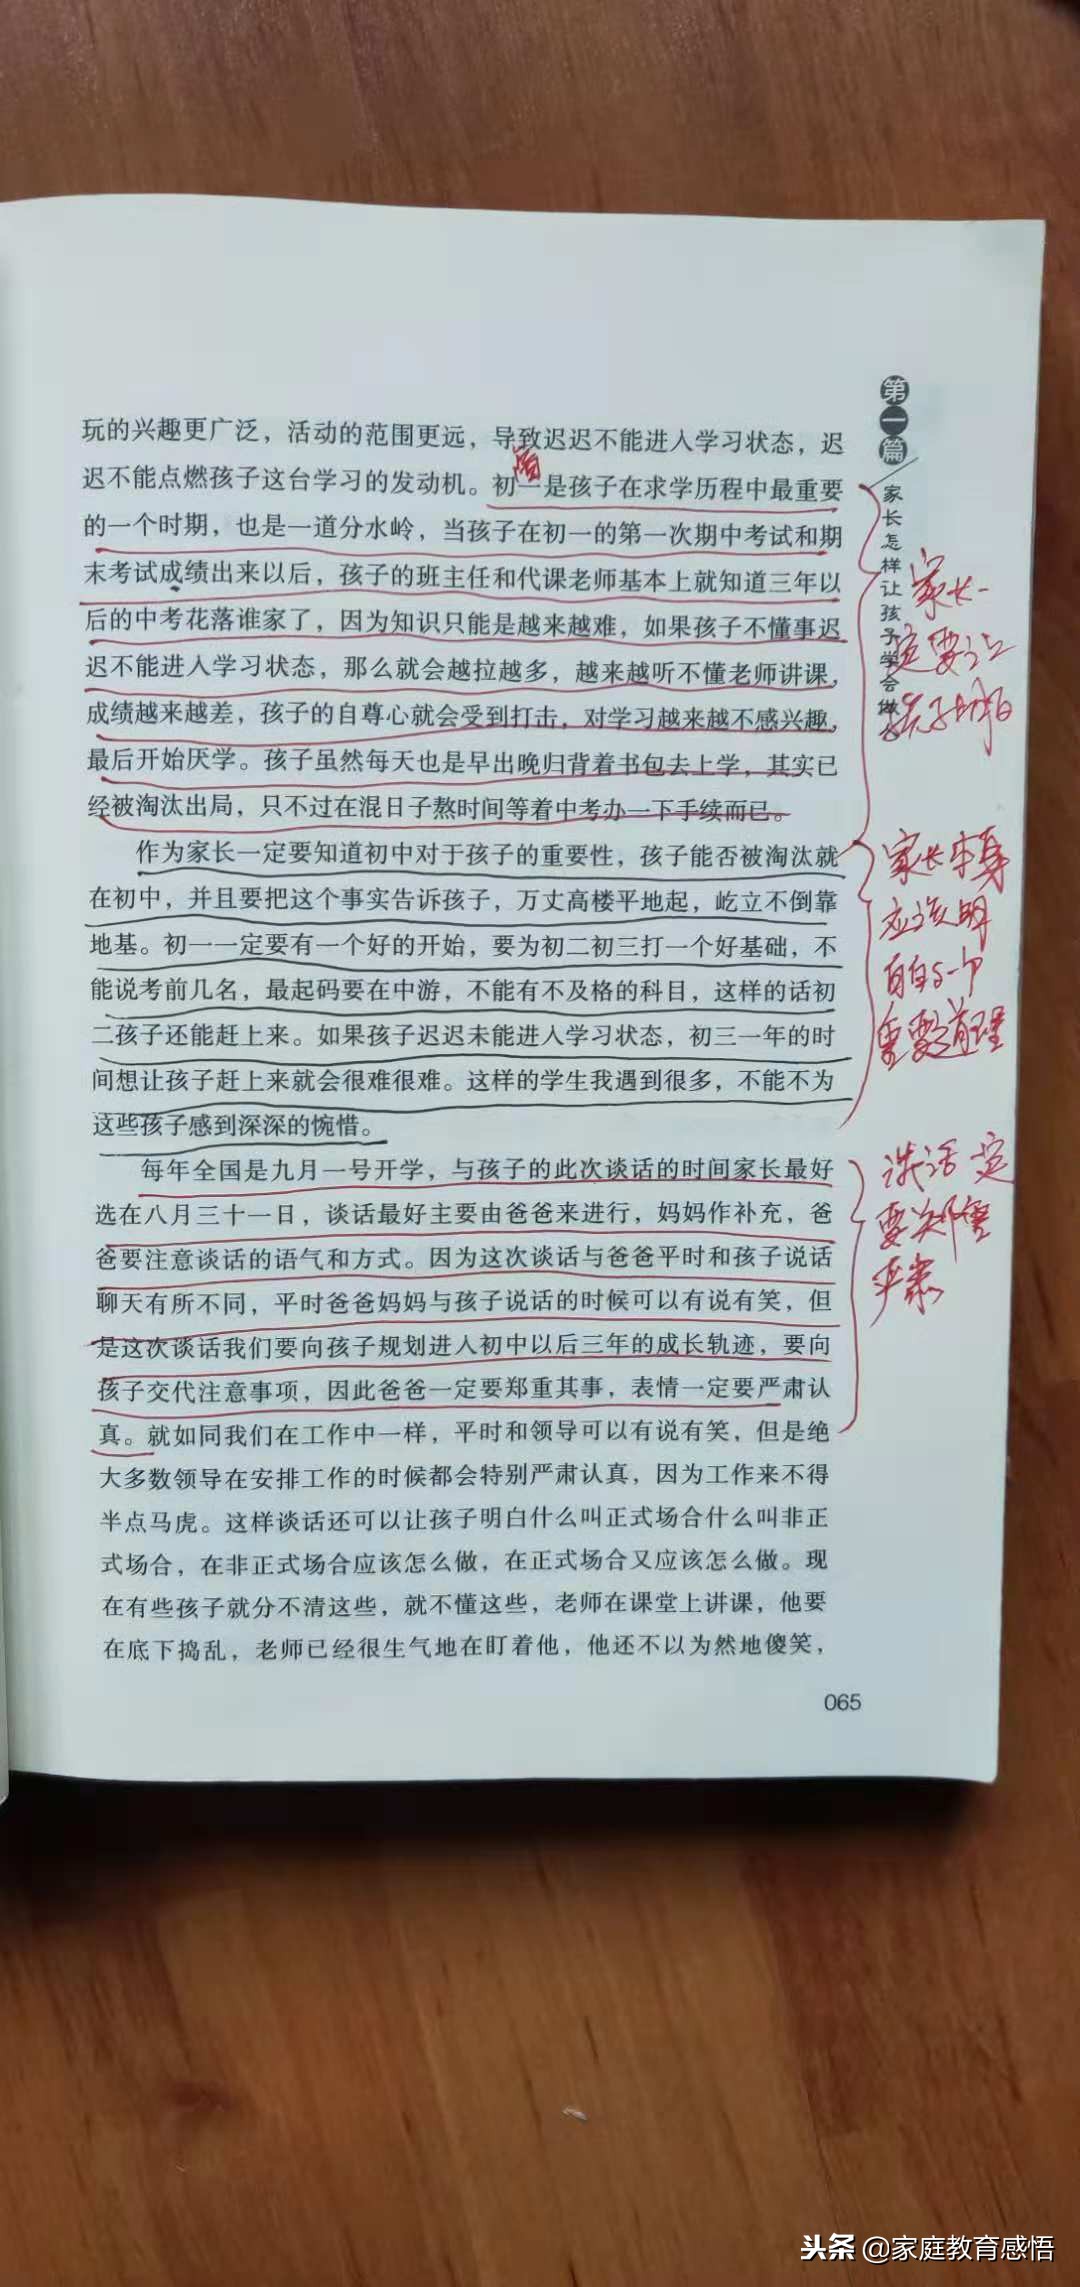 玩的兴趣更广泛，活动的范围更远，导致迟迟不能进入学习状态，迟
迟不能点燃孩子这台学习的发动机。初一是孩子在求学历程中最重要
的一个时期，也是一道分水岭，当孩子在初一的第一次期中考试和期
末考试成绩出来以后，孩子的班主任和代课老师基本上就知道三年以
后的中考花落谁家了，因为知识只能是越来越难，如果孩子不懂事迟
迟不能进入学习状态，那么就会越拉越多，越来越听不懂老师讲课，
成绩越来越差，孩子的自尊心就会受到打击，对学习越来越不感兴趣，
最后开始厌学。孩子虽然每天也是早出晚归背着书包去上学，其实已
经被淘汰出局，只不过在混日子熬时间等着中考办一下手续而已。
作为家长一定要知道初中对于孩子的重要性，孩子能否被淘汰就
在初中，并且要把这个事实告诉孩子，万丈高楼平地起，屹立不倒靠
地基。初一一定要有一个好的开始，要为初二初三打一个好基础，不
能说考前几名，最起码要在中游，不能有不及格的科目，这样的话初
二孩子还能赶上来。如果孩子迟迟未能进入学习状态，初三一年的时
间想让孩子赶上来就会很难很难。这样的学生我遇到很多，不能不为
这些孩子感到深深的惋惜。
每年全国是九月一号开学，与孩子的此次谈话的时间家长最好
选在八月三十一日，谈话最好主要由爸爸来进行，妈妈作补充，爸
爸要注意谈话的语气和方式。因为这次谈话与爸爸平时和孩子说话
聊天有所不同，平时爸爸妈妈与孩子说话的时候可以有说有笑，但
是这次谈话我们要向孩子规划进入初中以后三年的成长轨迹，要向
孩子交代注意事项，因此爸爸一定要郑重其事，表情一定要严肃认
真。就如同我们在工作中一样，平时和领导可以有说有笑，但是绝
大多数领导在安排工作的时候都会特别严肃认真，因为工作来不得
半点马虎。这样谈话还可以让孩子明白什么叫正式场合什么叫非正
式场合，在非正式场合应该怎么做，在正式场合又应该怎么做。现
在有些孩子就分不清这些，就不懂这些，老师在课堂上讲课，他要
在底下捣乱，老师已经很生气地在盯着他，他还不以为然地傻笑，
065
第一篇
家长怎样让孩子学会做
家长一
定要让
孩子明白
家长本身
应该明
白
重要道理
谈话一定
要郑重
严肃
头条 @家庭教育感悟